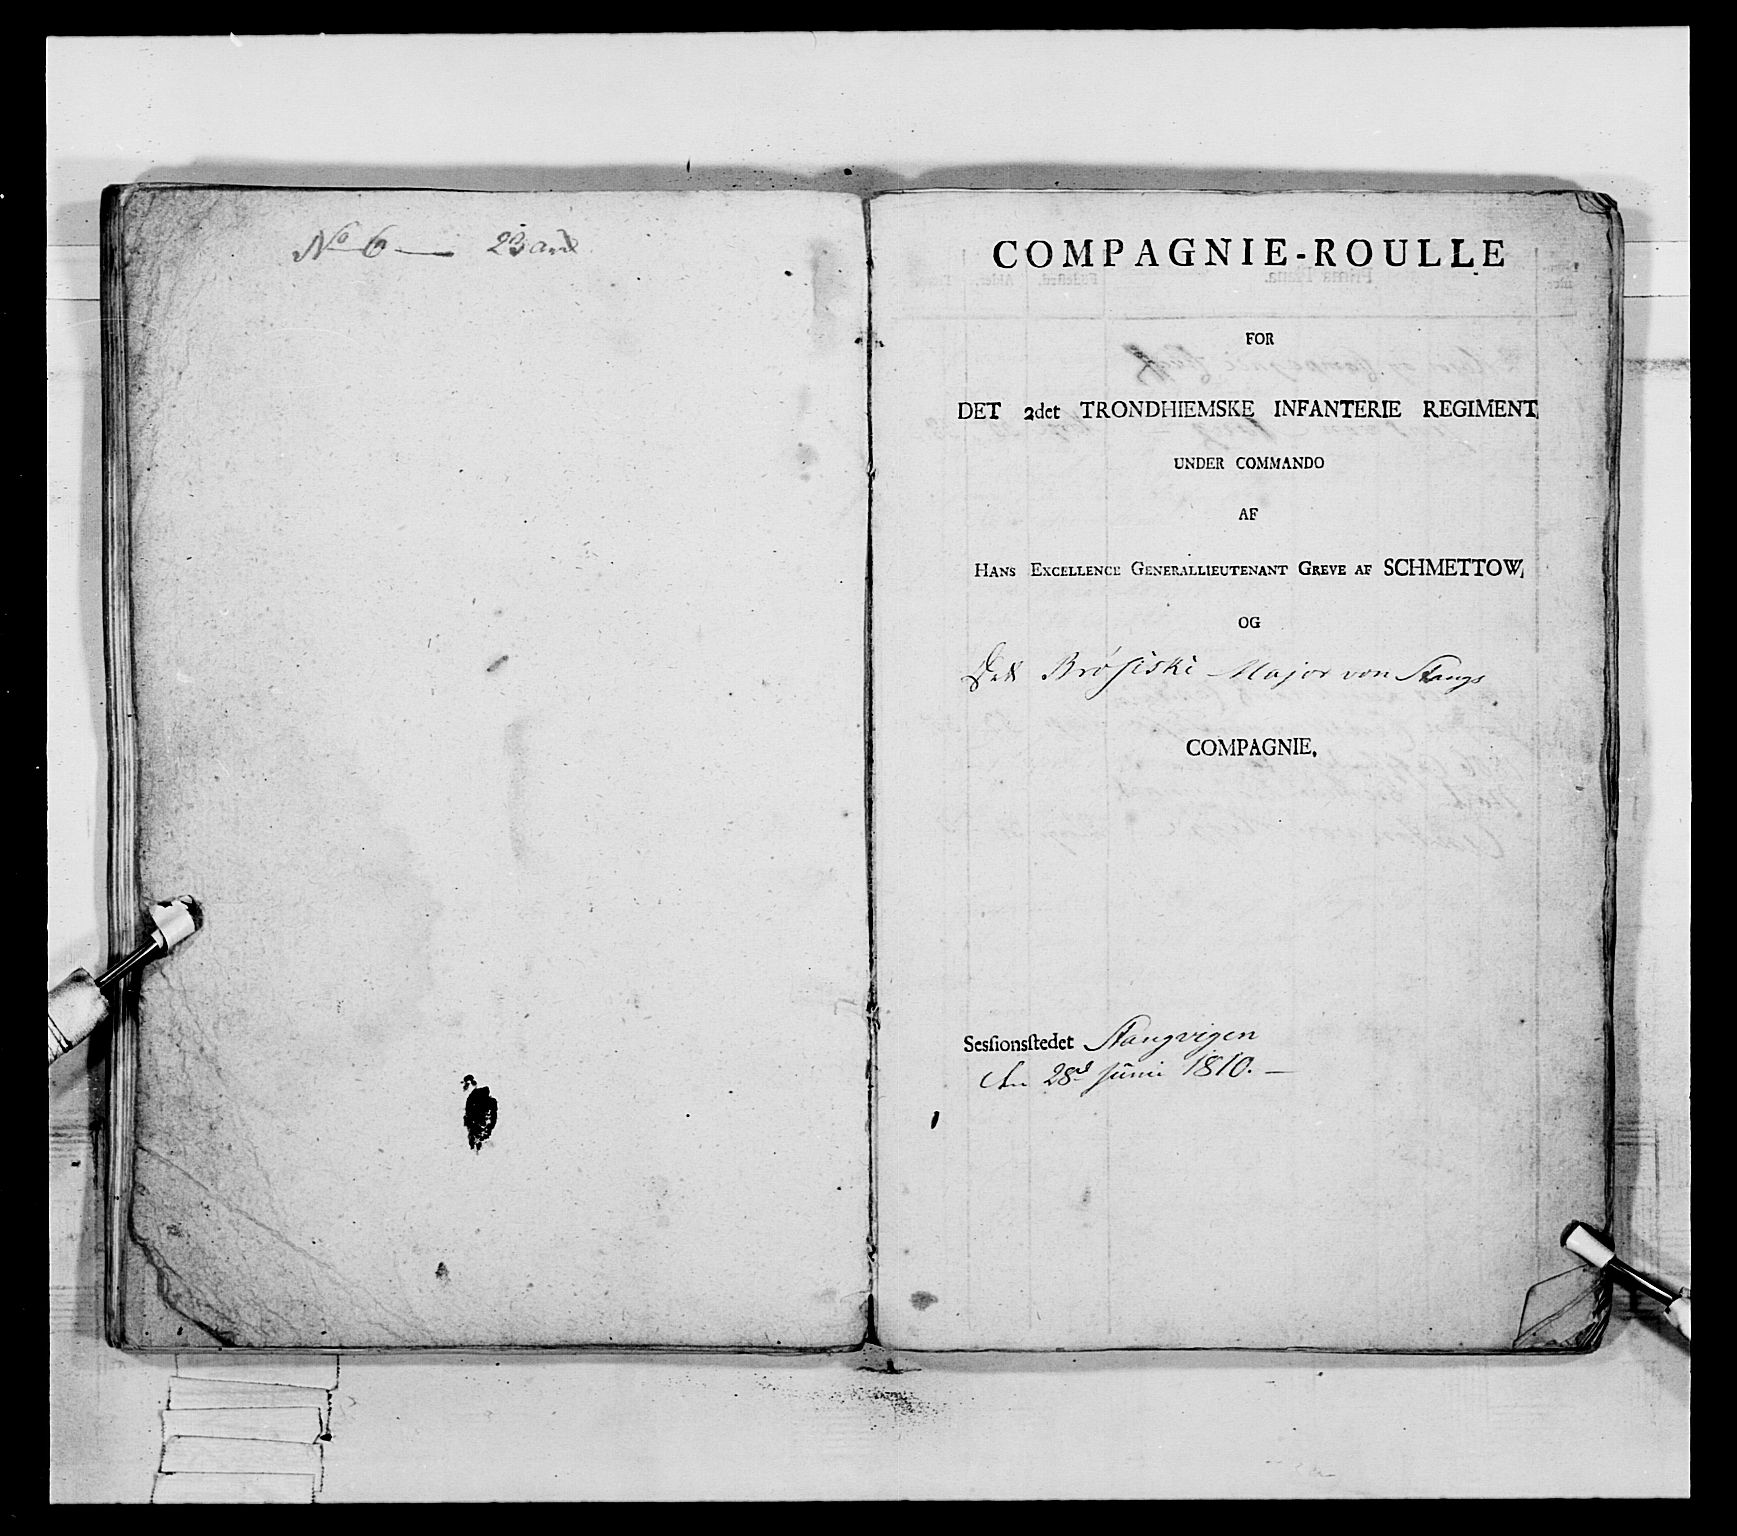 No 6 — 23
COMPAGNIE-ROULLE
FOR
DET 2det TRONDHIEMSKE INFANTERIE REGIMENT
UNDER COMMANDO
AF
HANS EXCELLENCE GENERALLIEUTENANT GREVE AF SCHMETTOW,
OG
Brøsiske Major von Stangs
COMPAGNIE,
Sesſionsſtedet Stangvigen
den 28d Juni 1810. —